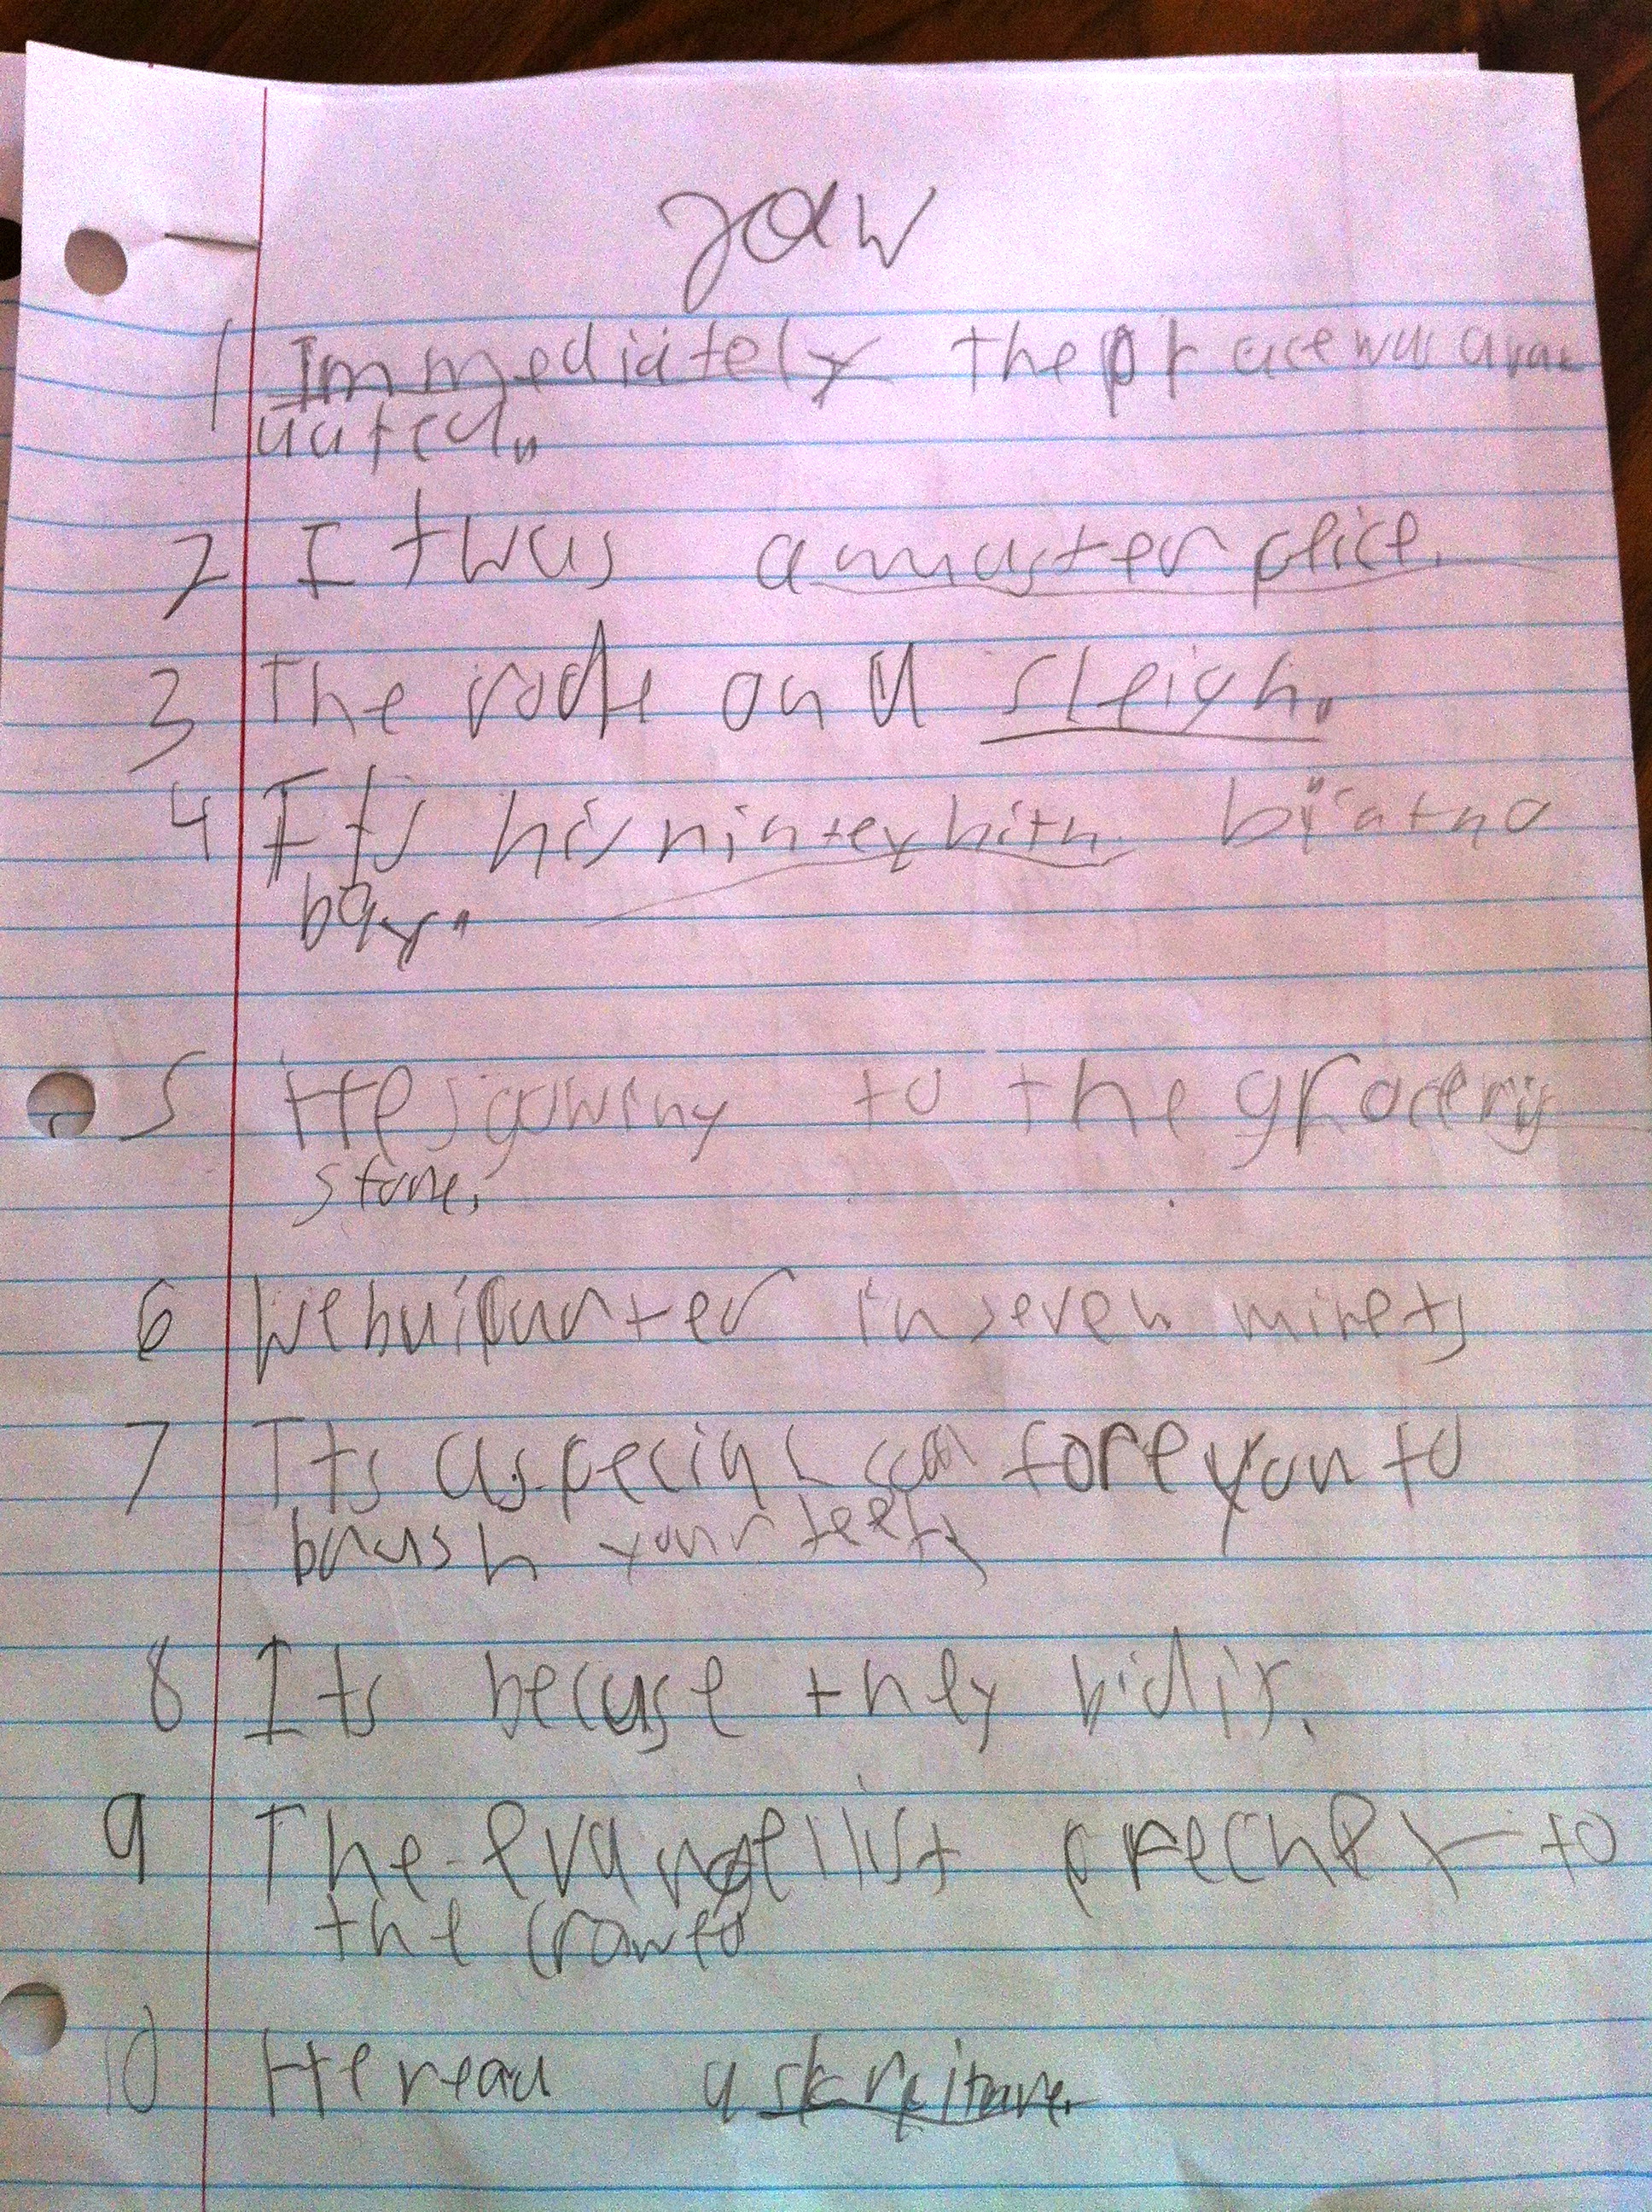 1 Immediately the place was avac
uated.
2 It was a masterpeice.
3 The rode on a sleigh.
4 Its his ninteyhith
bay.
5 He s gowing to the grocery
store.
6 We in seven minets
7 Its aspecial fore you to
brush your teeth
8 Its becuse they
9 The evangelist precher to
the
10 He read a